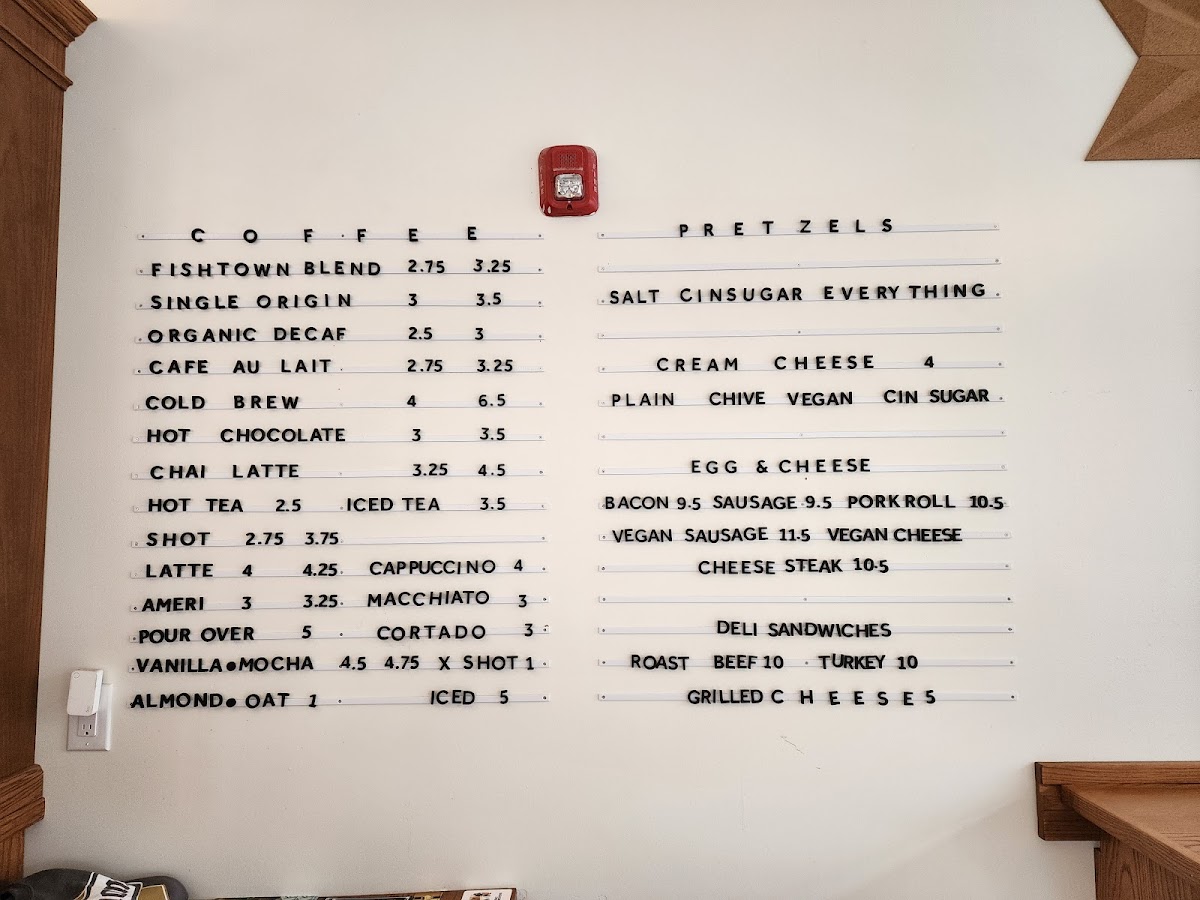 C O F F E E
FISHTOWN BLEND 2.75 3.25
SINGLE ORIGIN 3 3.5
ORGANIC DECAF 2.5 3
CAFE AU LAIT 2.75 3.25
COLD BREW 4 6.5
HOT CHOCOLATE 3 3.5
CHAI LATTE 3.25 4.5
HOT TEA 2.5 ICED TEA 3.5
SHOT 2.75 3.75
LATTE 4 4.25 CAPPUCCINO 4
AMERI 3 3.25 MACCHIATO 3
POUR OVER 5 CORTADO 3
VANILLA•MOCHA 4.5 4.75 X SHOT 1
ALMOND•OAT 1 ICED 5
PRETZELS
SALT CINSUGAR EVERYTHING
CREAM CHEESE 4
PLAIN CHIVE VEGAN CIN SUGAR
EGG & CHEESE
BACON 9.5 SAUSAGE 9.5 PORK ROLL 10.5
VEGAN SAUSAGE 11.5 VEGAN CHEESE
CHEESE STEAK 10.5
DELI SANDWICHES
ROAST BEEF 10 TURKEY 10
GRILLED CHEESE 5